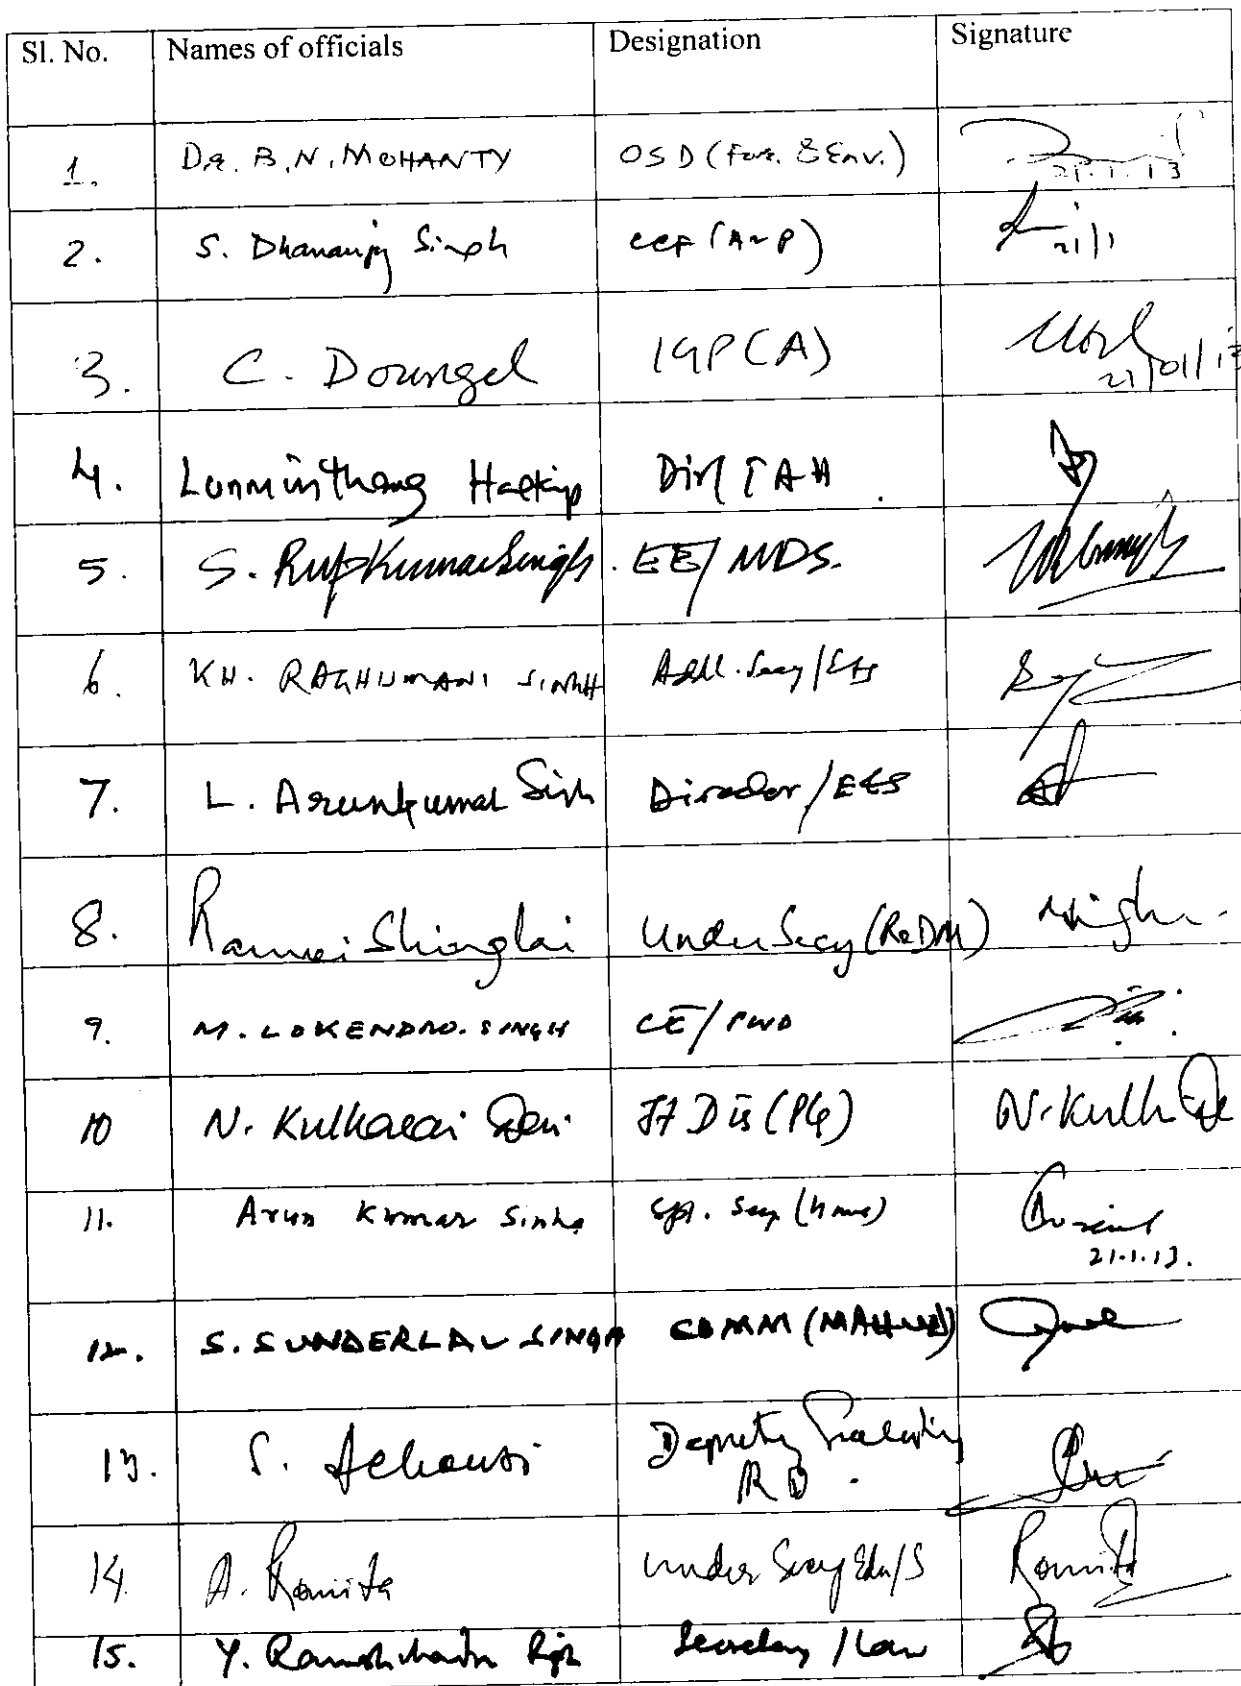 Sl. No. Names of officials Designation Signature
1. DR. B.N. MOHANTY OSD (For. & Env.)
21.1.13
2. S. Dhananjoy Singh CCF (A~P)
21/1
3. C. Doungel IGP (A)
21/01/13
4. Lunminthang Haokip Dir/ TA H
5. S. Rupkumar Singh. EE/ MDS.
6. KH. RAGHUMANI SINGH Addl. Secy/
7. L. Arunkumar Singh Director/EES
8. Kamei Shinglai Under Secy (R&DM)
9. M. LOKENDRO. SINGH CE/PWD
10 N. Devi Jt Dir (PG) N. Kulh
11. Arun Kumar Sinha Spl. Secy (Home)
21.1.13.
12. S. SUNDERLAL SINGH COMM (MAHUD)
13. S. Achousi Deputy Secretary
RD.
14. A. Romita Under Secy Edn/S Romita
15. Y. Secretary /Law